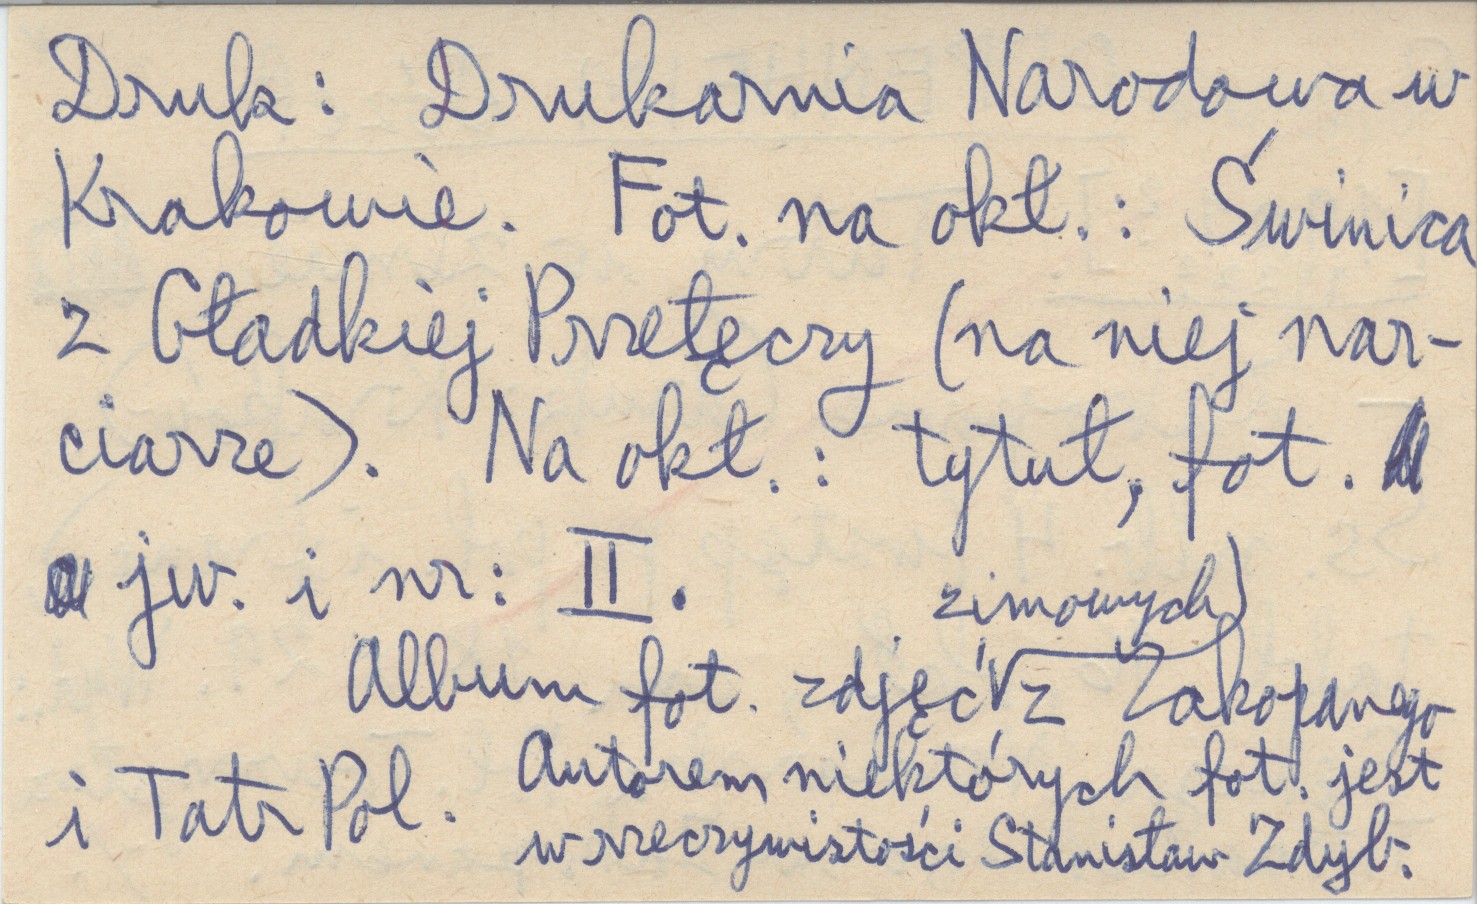 Druk: Drukarnia Narodowa w
Krakowie. Fot. na okł.: Świnica
z Gładkiej Przełęczy (na niej nar-
ciarze). Na okł.: tytuł, fot.
jw. i nr: II.
Album fot. zdjęć zimowych z Zakopanego
i Tatr Pol. Autorem niektórych fot. jest
w rzeczywistości Stanisław Zdyb.